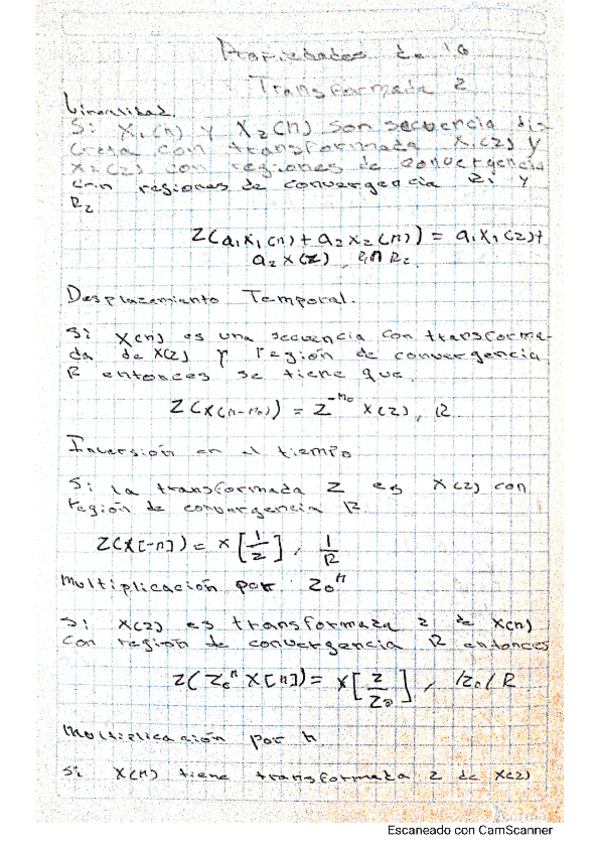 Propiedades de la
Transformada Z
Linealidad.
Si X₁(n) y X₂(n) son secuencia dis
creta con transformada X₁(z) y
X₂(z) con regiones de convergencia
con regiones de convergencia R1 y
R₂
Z(a₁x₁(n)+a₂x₂(n)) = a₁X₁(z)+
a₂X(z), R₂
Desplazamiento Temporal.
Si X(n) es una secuencia con transforma-
da de X(z) y región de convergencia
R entonces se tiene que
Z(X(n-n₀)) = Z^-n₀ X(z), R
Inversión en el tiempo
Si la transformada Z es X(z) con
región de convergencia R
Z(X[-n]) = X[1/z], 1/R
Multiplicación por Z₀^n
Si X(z) es transformada z de X(n)
con región de convergencia R entonces
Z(Z₀^n X[n]) = X[z/z₀], |z₀|R
Multiplicación por n
Si X(n) tiene transformada z de X(z)
Escaneado con CamScanner